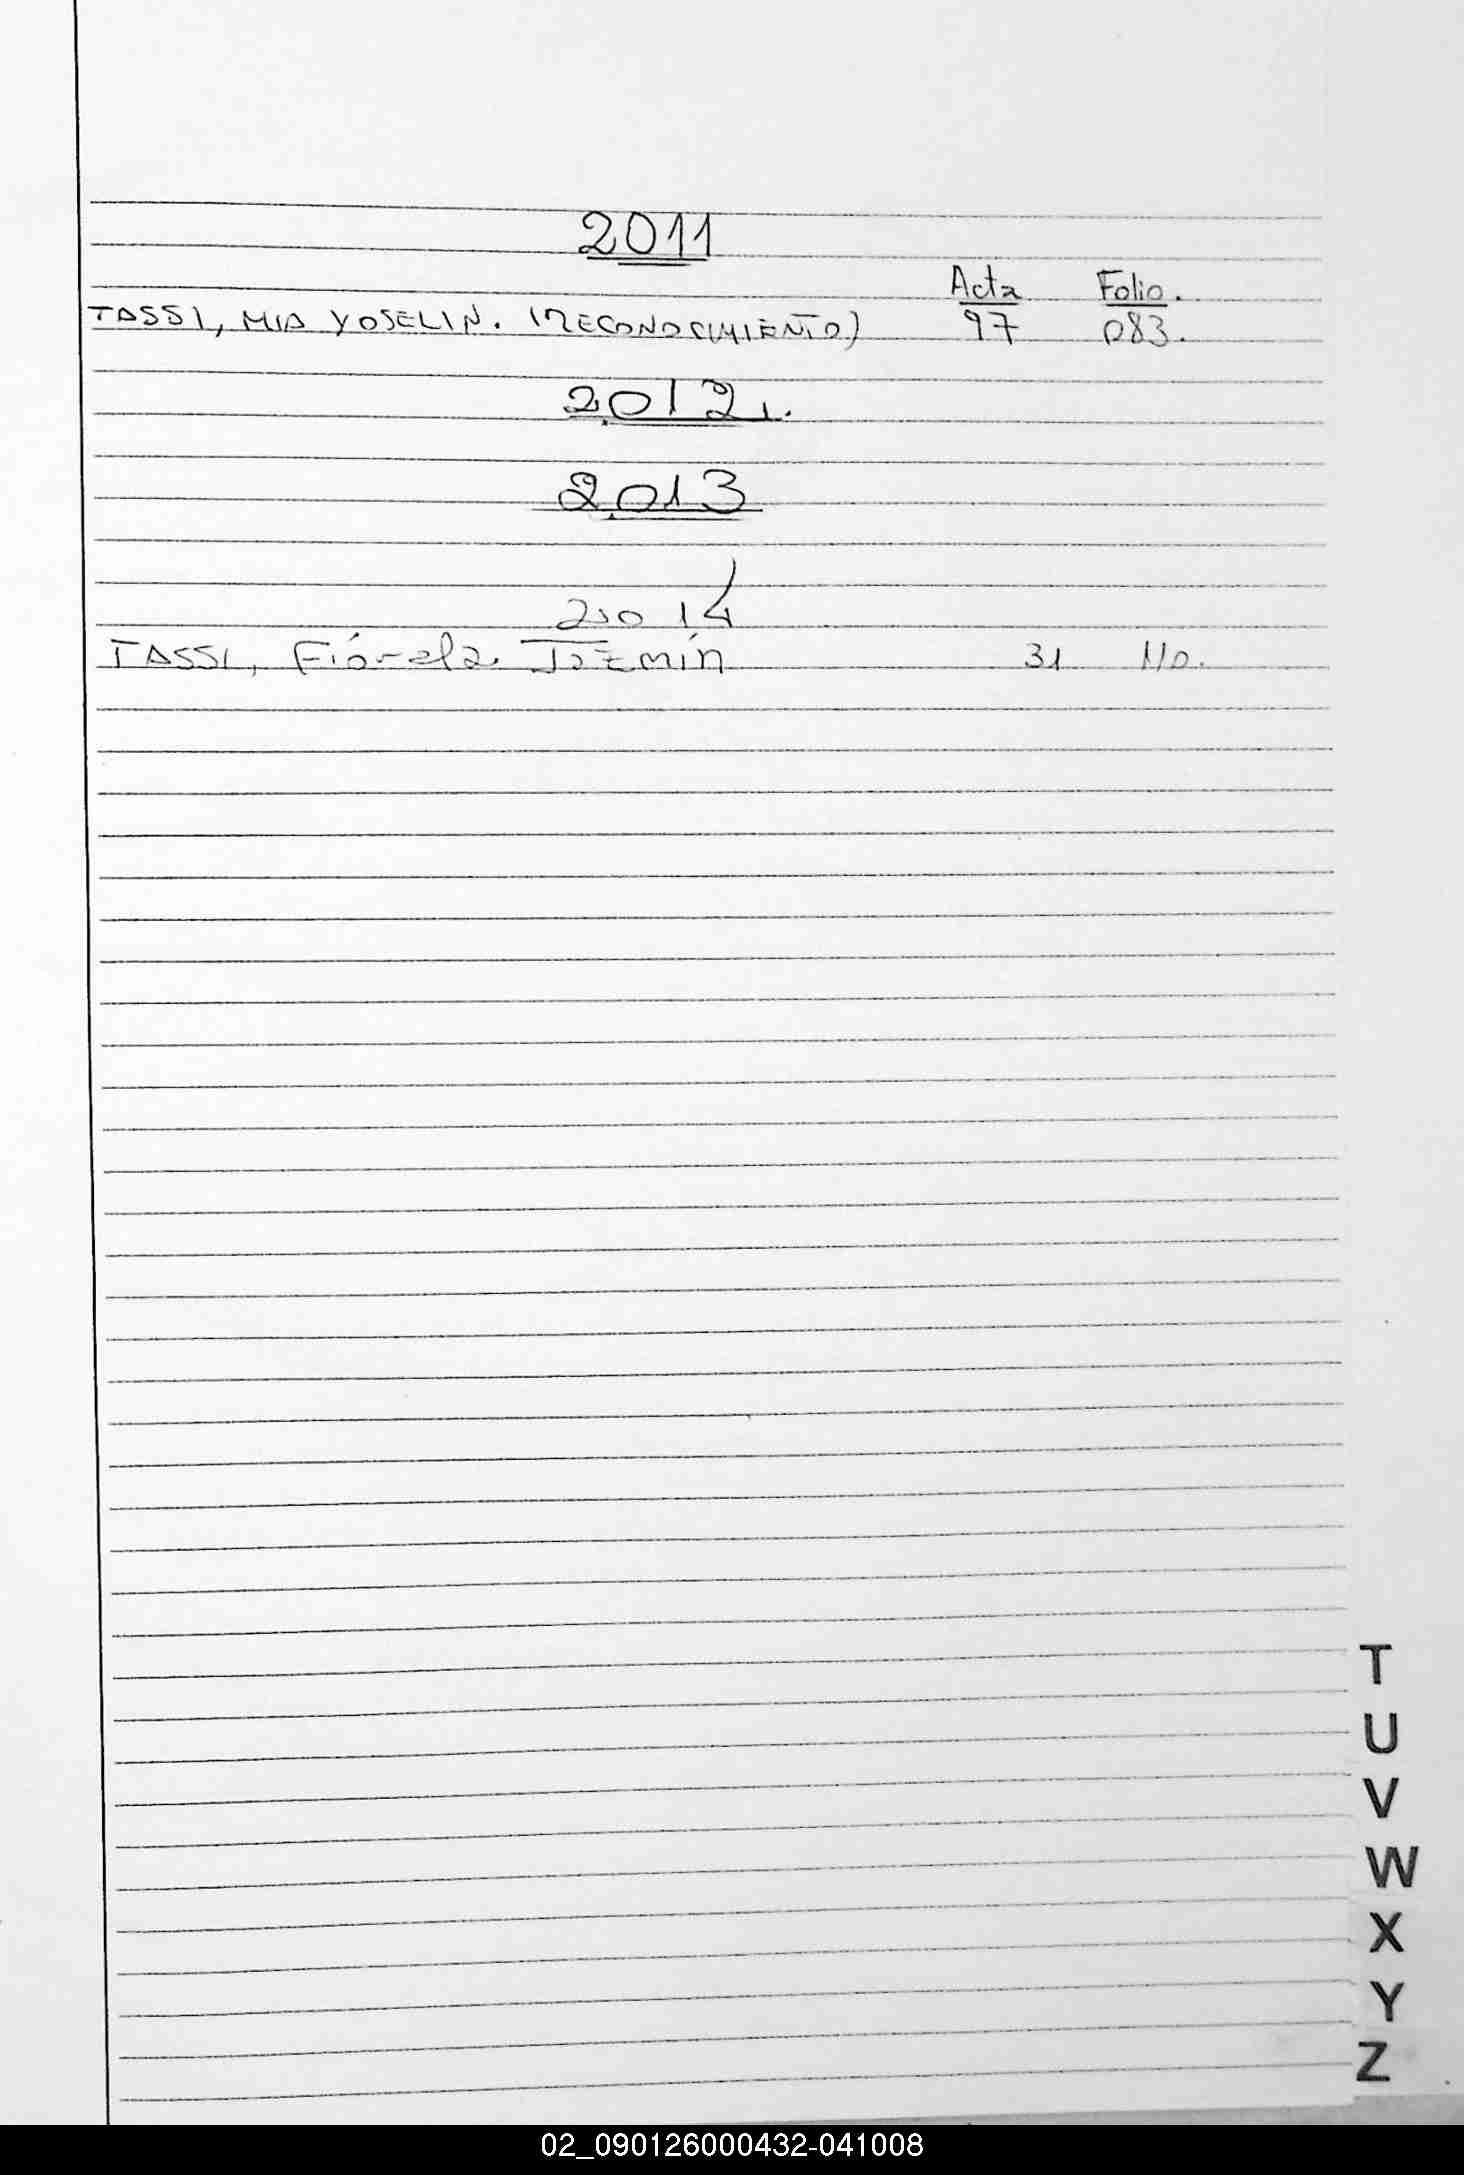 2011
Acta Folio.
TASSI, MIA YOSELIN. (RECONOCIMIENTO) 97 083.
2012.
2013
2014
TASSI, Fiórela Jazmín 31 110.
T
U
V
W
X
Y
Z
02_090126000432-041008